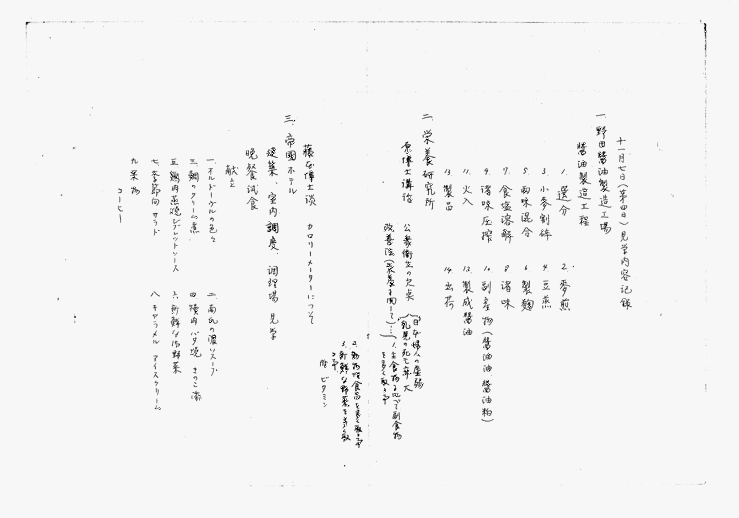 十一月七日(第四日)見学内容記録
一、野田醤油製造工場
醤油製造工程
1. 選分
2. 麥煎
3. 小麥割砕
4. 豆蒸
5. 両味混合
6. 製麹
7. 食塩溶解
8. 諸味
9. 諸味圧搾
10. 副産物(醤油油 醤油粕)
11. 火入
12. 製成醤油
13. 製品
14. 出荷
二、栄養研究所
原博士講話
公衆衛生の欠点
日本婦人の
乳児の死亡率大
改善法
1. 主食物に比べて副食物を多く取る事
2. 動物性食品を多く取る事
3. 新鮮な野菜を多く取る事
ビタミン
藤本博士談 カロリーメーターについて
三、帝國ホテル
建築、室内調度、調理場 見学
晩餐試食
献立
一、オルドーヴルの色々
二、南瓜の濃いスープ
三、鯛のクリーム煮
四、犢肉バタ焼 きのこ添
五、鶏肉蒸焼ジブレットソース
六、新鮮な温野菜
七、季節向サラド
八、キャラメル アイスクリーム
九、菓物
コーヒー